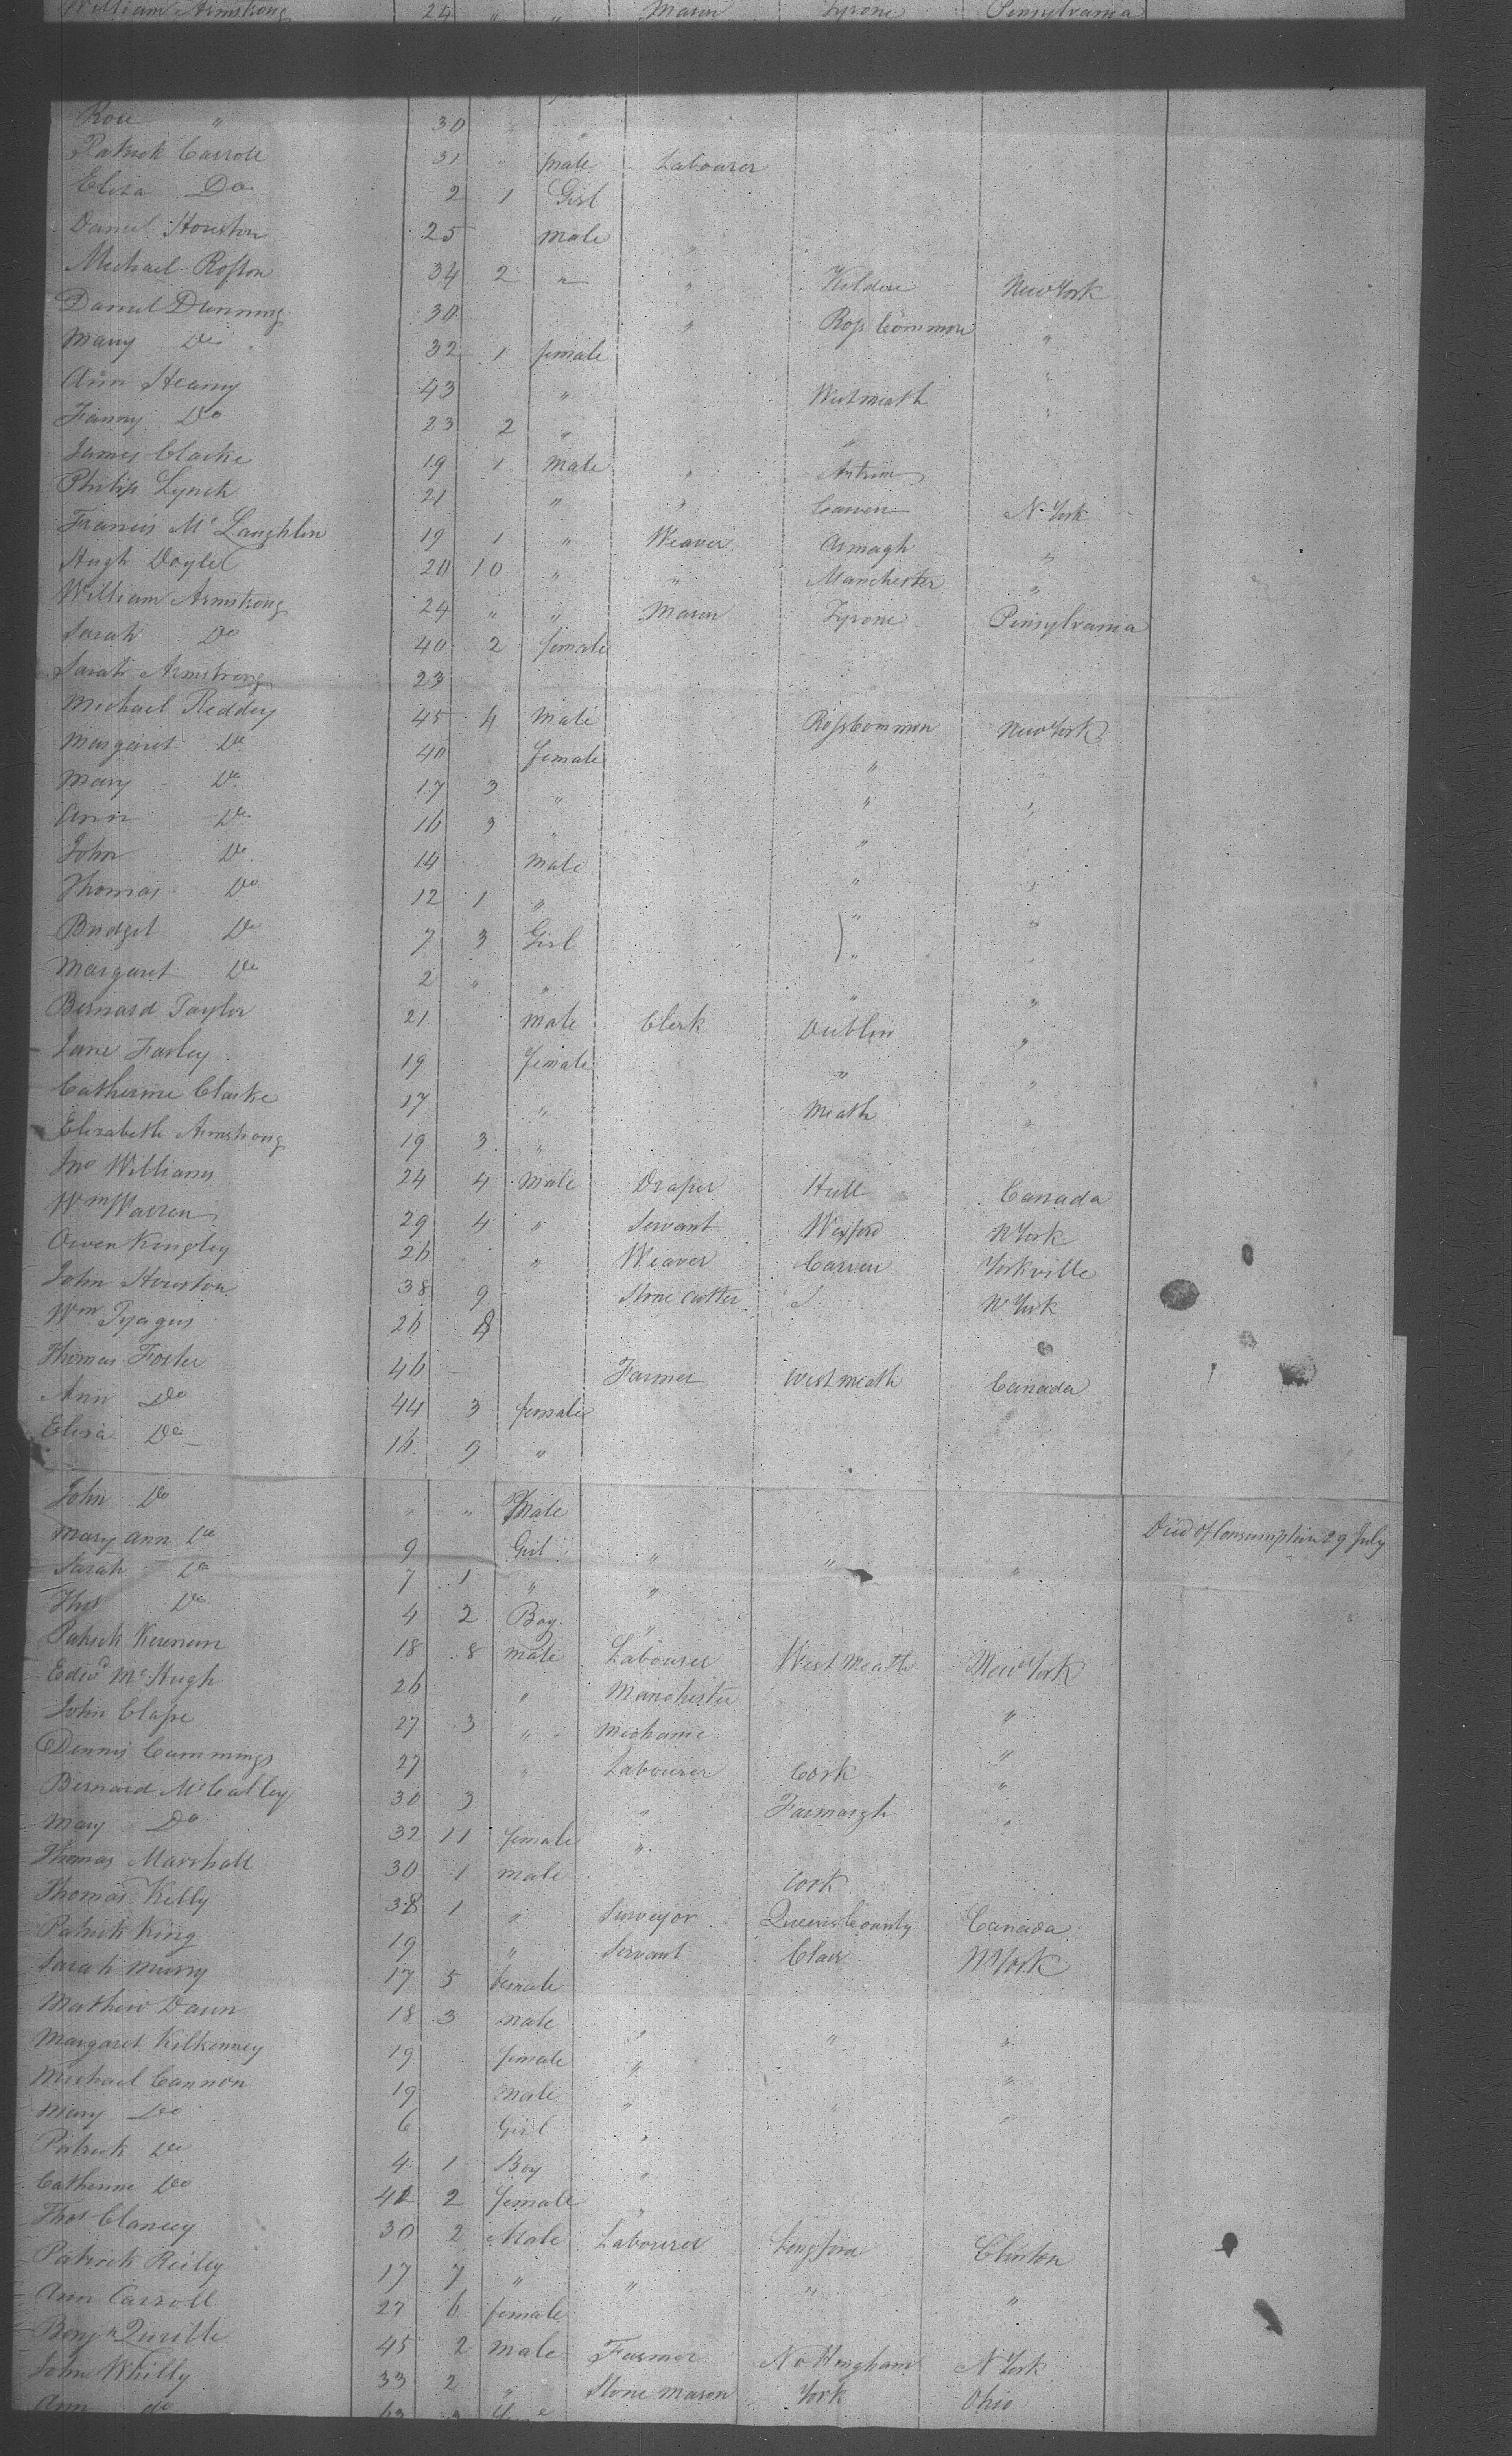 William Armstrong 24 " " Mason Tyrone Pensylvania
Rose " 30 "
Patrick Carroll 31 " male Labourer
Eliza Do 2 1 Girl
Daniel Houston 25 male "
Michael Rofton 34 2 " " Kildare New York
Daniel Dunning 30 " Ross Common "
Mary Do 32 1 female "
Ann Heany 43 " Westmeath "
Fanny Do 23 2 " "
James Clarke 19 1 Male " Antrim
Philip Lynch 21 " " Caven N. York
Francis Mc Laughlin 19 1 " Weaver Armagh "
Hugh Doyle 20 10 " " Manchester "
William Armstrong 24 " " Mason Tyrone Pensylvania
Sarah Do 40 2 female
Sarah Armstrong 23
Michael Reddey 45 4 Male RossCommon New York
Margaret Do 40 female " "
Mary Do 17 3 " " "
Ann Do 16 3 " "
John Do 14 Male " "
Thomas Do 12 1 " " "
Bridget Do 7 3 Girl " "
Margaret Do 2 " " " "
Bernard Taylor 21 male Clerk Dublin "
Jane Farley 19 female " "
Catherine Clarke 17 " Meath "
Elizabeth Armstrong 19 3 "
Jno Williams 24 4 Male Draper Hull Canada
Wm Warren 29 4 " Servant Wexford N York
Owen Kingley 26 " Weaver Carven Yorkville
John Houston 38 9 Stone Cutter N York
Wm 26 8
Thomas Foster 46 Farmer West meath Canada
Ann Do 44 3 female
Eliza Do 16 9 "
John Do " " Male Died of Consumption 29 July
Mary ann Do 9 Girl " " "
Sarah Do 7 1 " "
Thos Do 4 2 Boy "
Patrick 18 8 male Labourer West Meath New York
Edwd McHugh 26 " Manchester "
John 27 3 " Mechanic "
Dennis Cummings 27 " Labourer Cork "
Bernard McCalley 30 3 " Farmargh "
Mary Do 32 11 female "
Thomas Marshall 30 1 male Cork
Thomas Kelly 38 1 " Surveyor Queens County Canada
Patrick King 19 " Servant Clair N York
Sarah Murry 17 5 female
Mathew Dawn 18 3 male " " "
Margaret Kilkenney 19 female " "
Michael Cannon 19 male " " "
Mary Do 6 Girl "
Patrick Do 4 1 Boy "
Catherine Do 42 2 female "
Thos Clancey 30 2 Male Labourer Longford Clinton
Patrick Reiley 17 7 " " " "
Ann Carroll 27 6 female
Benjn 45 2 male Farmer Nottingham N York
John Whitty 33 2 " Stone Mason York Ohio
Ann do 63